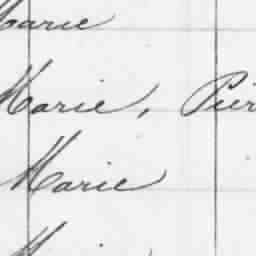 Marie
Marie, Pier
Marie